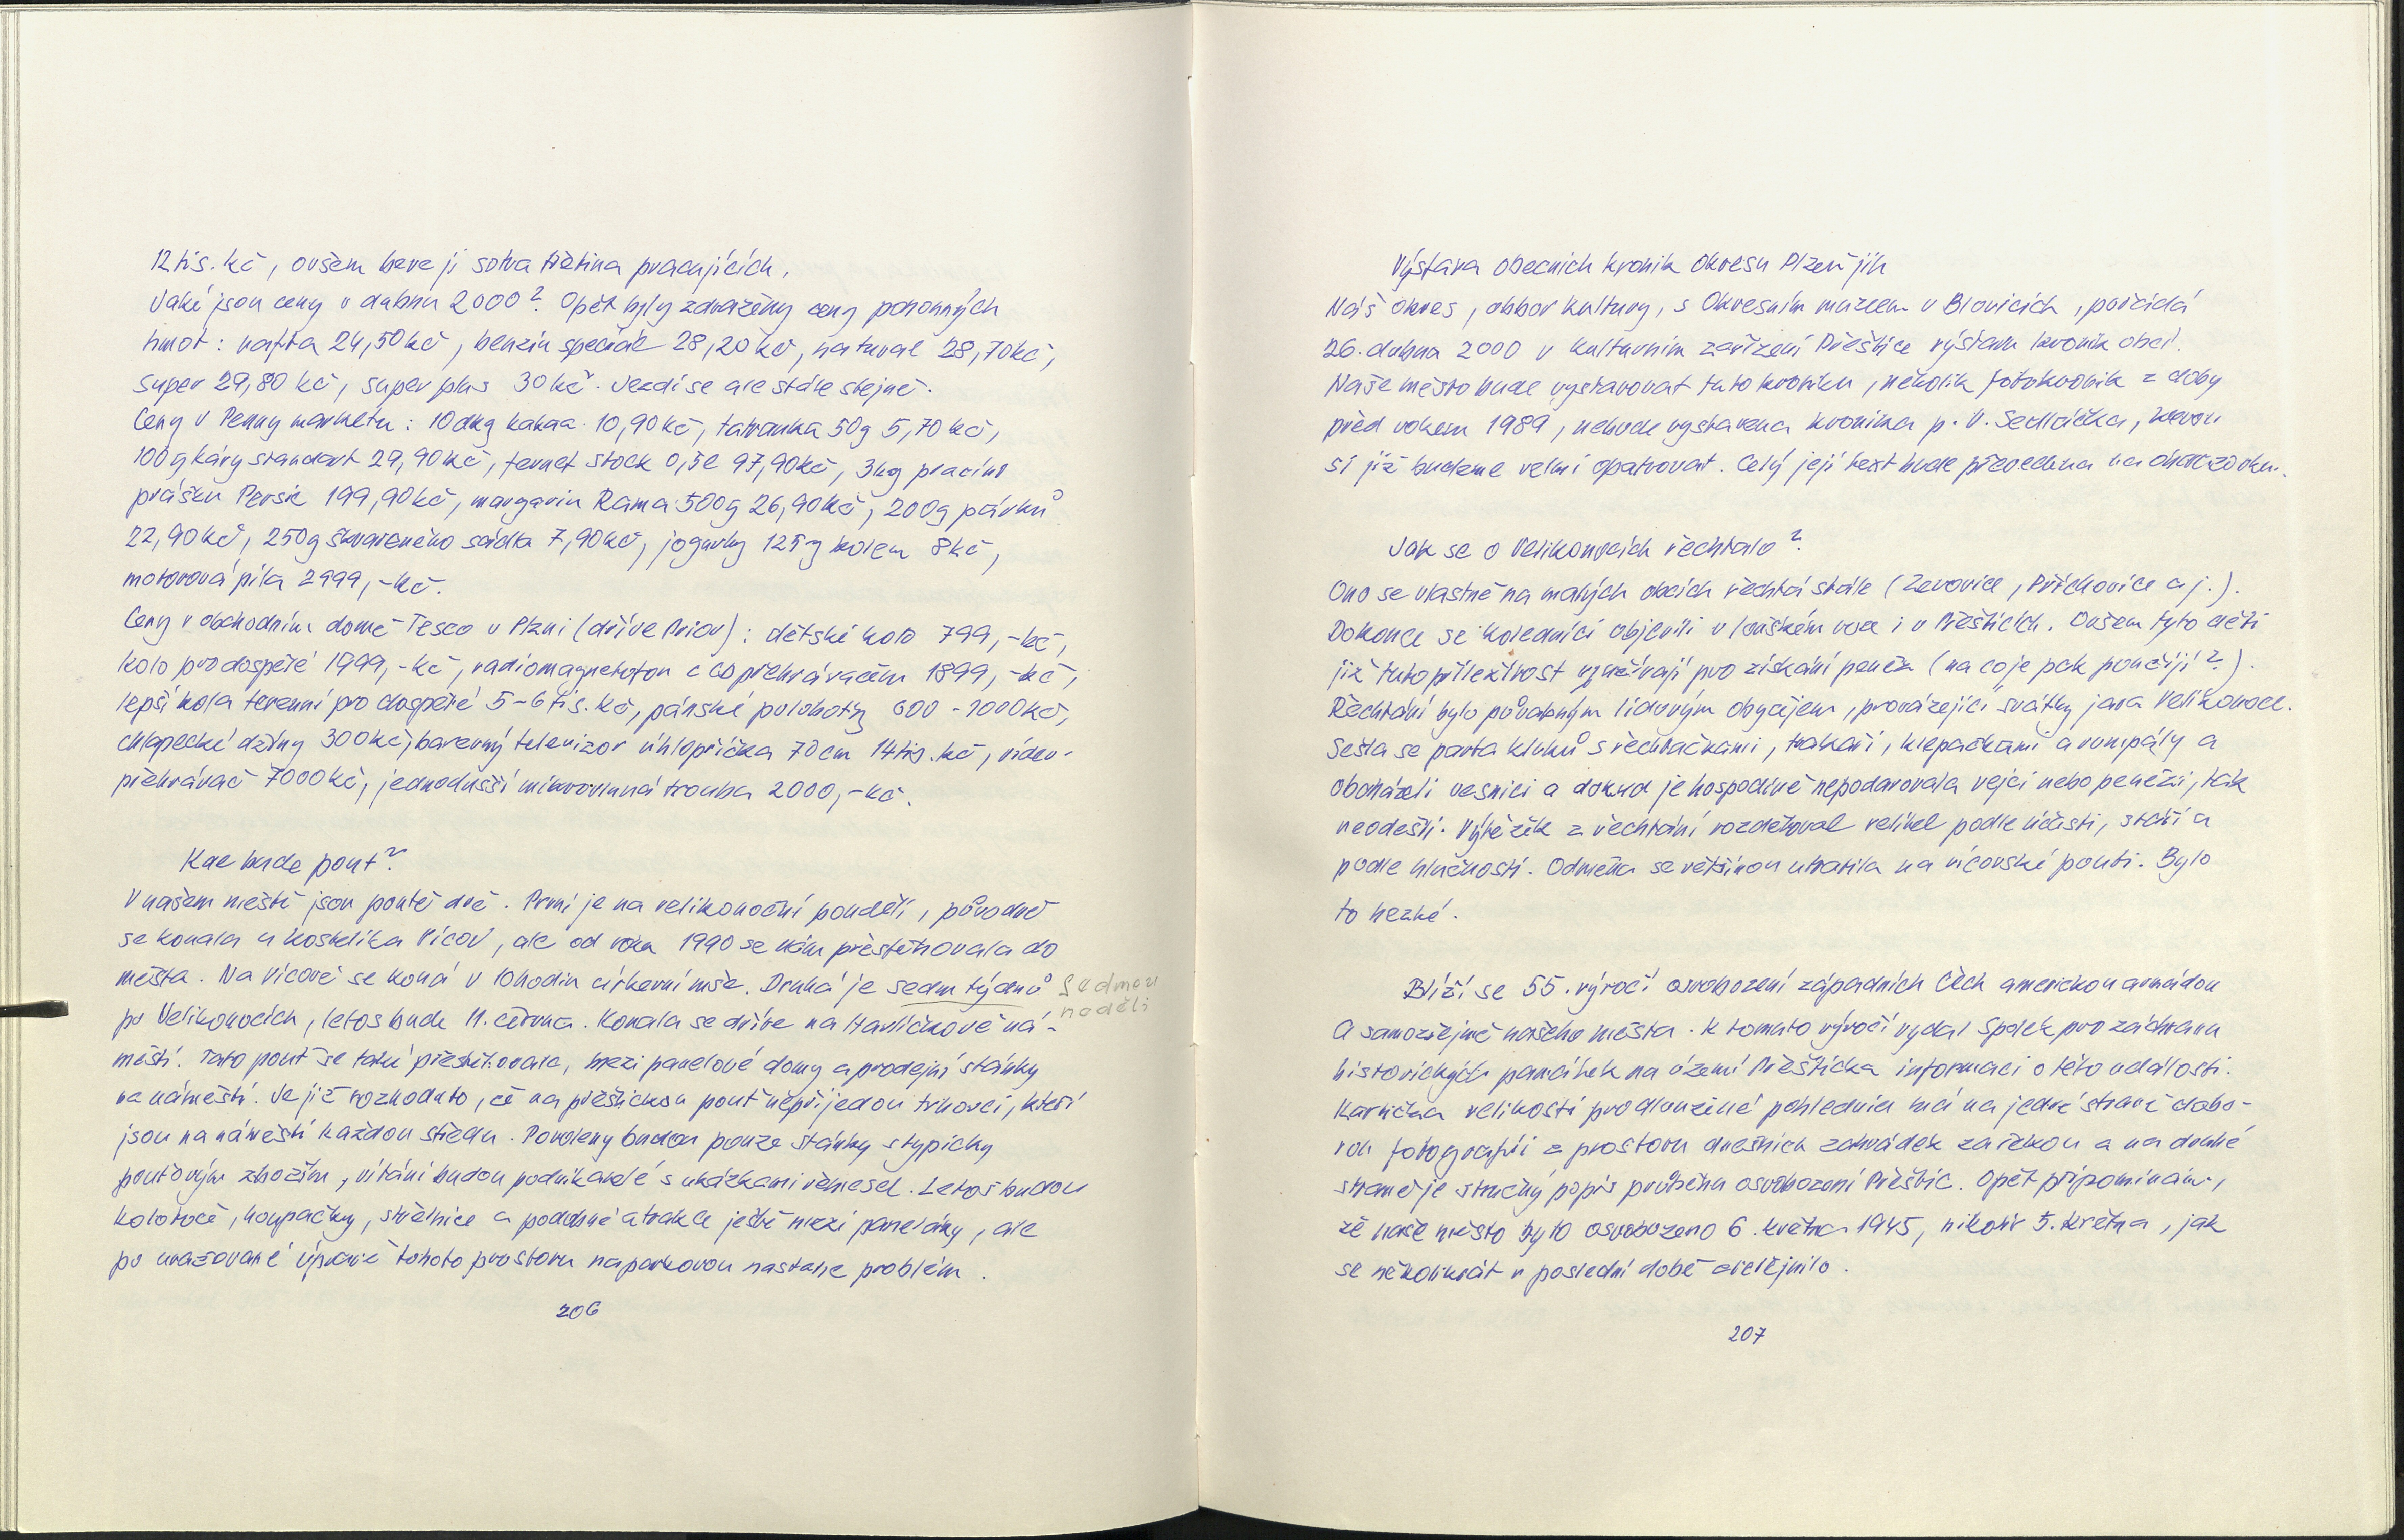 12 tis. kč, ovšem bere ji sotva třetina pracujících.
Jaké jsou ceny v dubnu 2000? Opět byly zdraženy ceny pohonných
hmot: nafta 24,50 kč, benzin speciál 28,20 kč, natural 28,70 kč,
super 29,80 kč, super plus 30 kč. Jezdí se ale stále stejně.
Ceny v Penny marketu: 10 dkg kakaa 10,90 kč, tatranka 50g 5,70 kč,
100 g kávy standart 29,90 kč, fernet stock 0,5l 97,90 kč, 3 kg pracího
prášku Persil 199,90 kč, margarin Rama 500g 26,90 kč, 200g párků
22,90 kč, 250g škvařeného sádla 7,90 kč, jogurty 125 g kolem 8 kč,
motorová pila 2999,- kč.
Ceny v obchodním domě Tesco v Plzni (dříve Prior): dětské kolo 799,- kč,
kolo pro dospělé 1999,- kč, radiomagnetofon s CD přehrávačem 1899,- kč,
lepší kola terenní pro dospělé 5-6 tis. kč, pánské polobotky 600 - 1000 kč,
chlapecké džíny 300 kč, barevný televizor úhlopříčka 70 cm 14 tis. kč, video-
přehrávač 7000 kč, jednodušší mikrovlnná trouba 2000,- kč.
Kde bude pouť?
V našem městě jsou poutě dvě. První je na velikonoční pondělí, původně
se konala u kostelíka Vícov, ale od roku 1990 se nám přestěhovala do
města. Na Vícově se koná v 10 hodin církevní mše. Druhá je sedm týdnů sedmou
po Velikonocích, letos bude 11. června. Konala se dříve na Havlíčkově ná- neděli
městí. Tato pouť se také přestěhovala, mezi panelové domy a prodejní stánky
na náměstí. Je již rozhodnuto, že na přeštickou pouť nepřijedou trhovci, kteří
jsou na náměstí každou středu. Povoleny budou pouze stánky s typicky
pouťovým zbožím, vítáni budou podnikatelé s ukázkami řemesel. Letos budou
kolotoče, houpačky, střelnice a podobné atrakce ještě mezi paneláky, ale
po uvažované úpravě tohoto prostoru na parkovou nastane problém.
206
Výstava obecních kronik okresu Plzeň jih
Náš okres, odbor kultury, s Okresním muzeem v Blovicích, pořádá
26. dubna 2000 v kulturním zařízení Přeštice výstavu kronik obcí.
Naše město bude vystavovat tuto kroniku, několik fotokronik z doby
před rokem 1989, nebude vystavena kronika p. V. Sedláčka, kterou
si již budeme velmi opatrovat. Celý její text bude převeden na
Jak se o Velikonocích řechtalo?
Ono se vlastně na malých obcích řechtá stále (Zerovice, Příchovice a j.).
Dokonce se koledníci objevili v loňském roce i v Přešticích. Ovšem tyto děti
již tuto příležitost využívají pro získání peněz (na co je pak použijí?).
Řechtání bylo půvabným lidovým obyčejem, provázející svátky jara Velikonoce.
Sešla se parta kluků s řechtačkami, trakaři, klepačkami a rumpály a
obcházeli vesnici a dokud je hospodyně nepodarovala vejci nebo penězi, tak
neodešli. Výtěžek z řechtání rozděloval velitel podle účasti, stáří a
podle hlučnosti. Odměna se většinou utratila na vícovské pouti. Bylo
to hezké.
Blíží se 55. výročí osvobození západních Čech americkou armádou
a samozřejmě našeho města. K tomuto výročí vydal Spolek pro záchranu
historických památek na území Přešticka informaci o této události.
Kartička velikosti prodloužené pohlednice má na jedné straně dobo-
vou fotografii z prostoru dnešních zahrádek za řekou a na druhé
straně je stručný popis průběhu osvobození Přeštic. Opět připomínám,
že naše město bylo osvobozeno 6. května 1945, nikoliv 5. května, jak
se několikrát v poslední době zveřejnilo.
207